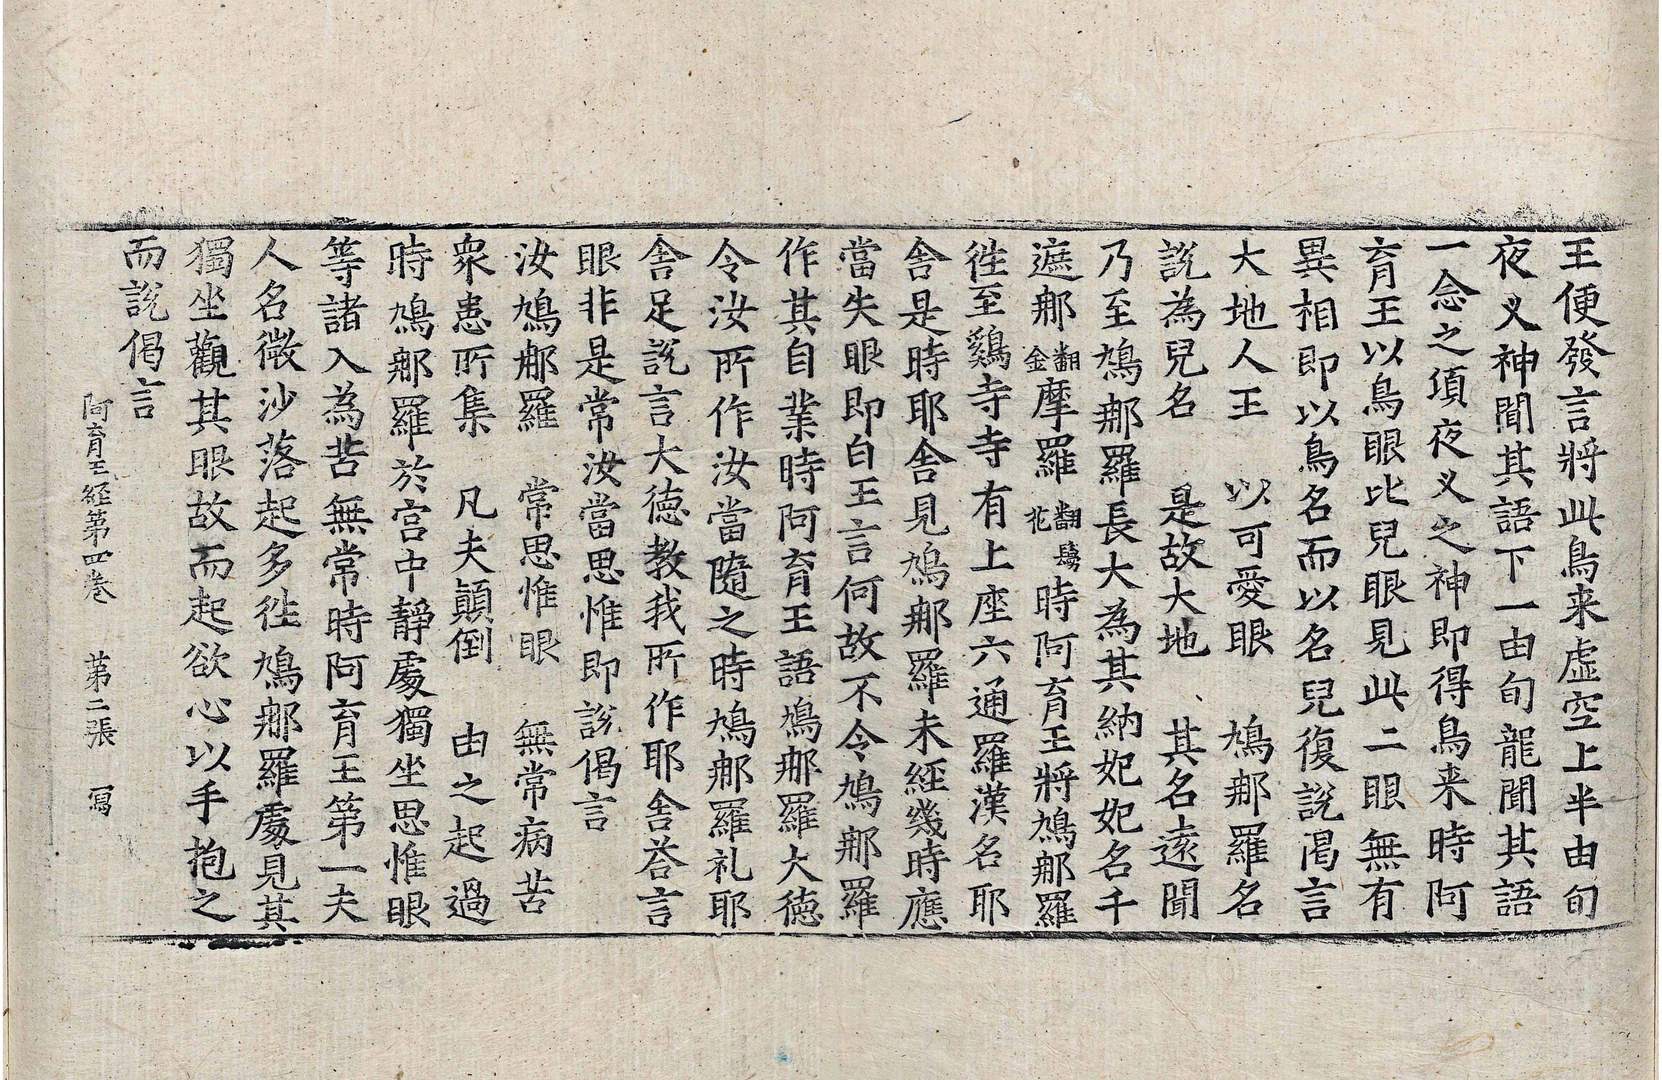 王便發言將此鳥来虛空上半由旬
夜义神聞其語下一由旬龍聞其語
一念之項夜义之神即得鳥来時阿
育王以鳥眼比兒眼見此二眼無有
異相即以鳥名而以名兒復說渇言
大地人王　以可愛眼　鳩那羅名
說為兒名　是故大地　其名遠聞
乃至鳩那羅長大為其納妃妃名千
遮那翻金摩羅翻鬘花時阿育王將鳩那羅
徃至鷄寺寺有上座六通羅漢名耶
舍是時耶舍見鳩那羅未經幾時應
當失眼即白王言何故不令鳩那羅
作其自業時阿育王語鳩那羅大德
令汝所作汝當隨之時鳩那羅礼耶
舍足說言大德教我所作耶舍荅言
眼非是常汝當思惟即說偈言
汝鳩那羅　常思惟眼　無常病苦
衆患所集　凡夫顛倒　由之起過
時鳩那羅於宮中靜處獨坐思惟眼
等諸入為苦無常時阿育王第一夫
人名微沙落起多徃鳩那羅處見其
獨坐觀其眼故而起欲心以手抱之
而說偈言
阿育王経第四巻　第二張　寫